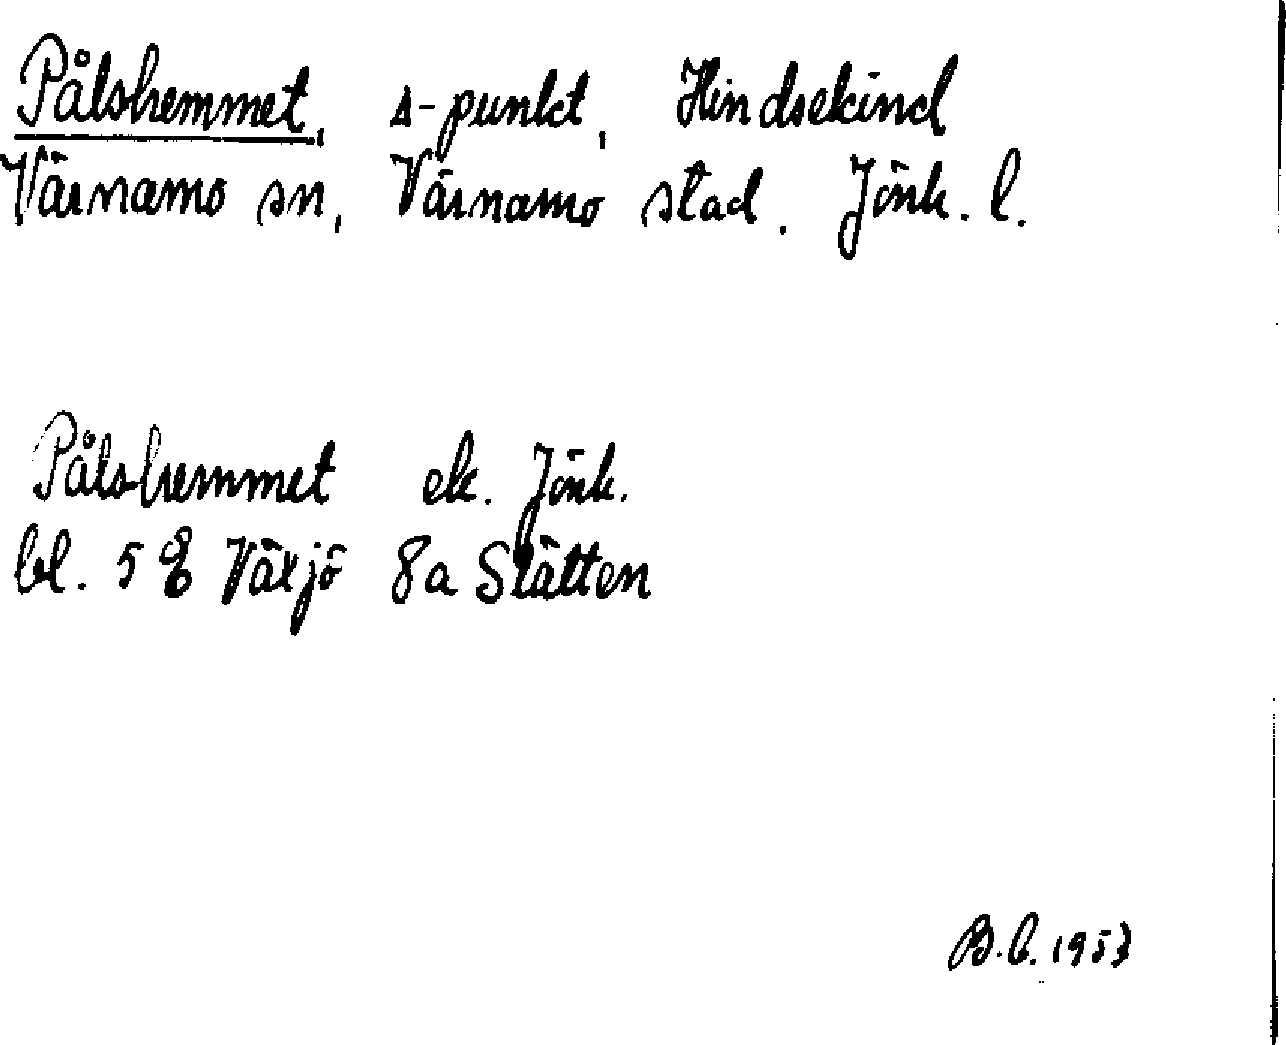 Pålshemmet, s-punkt, Hindsekind
Värnamo sn, Värnamo stad. Jönk. l.
Pålshemmet ek. Jönk.
bl. 5 E Växjö 8a Slätten
B.C. 1953